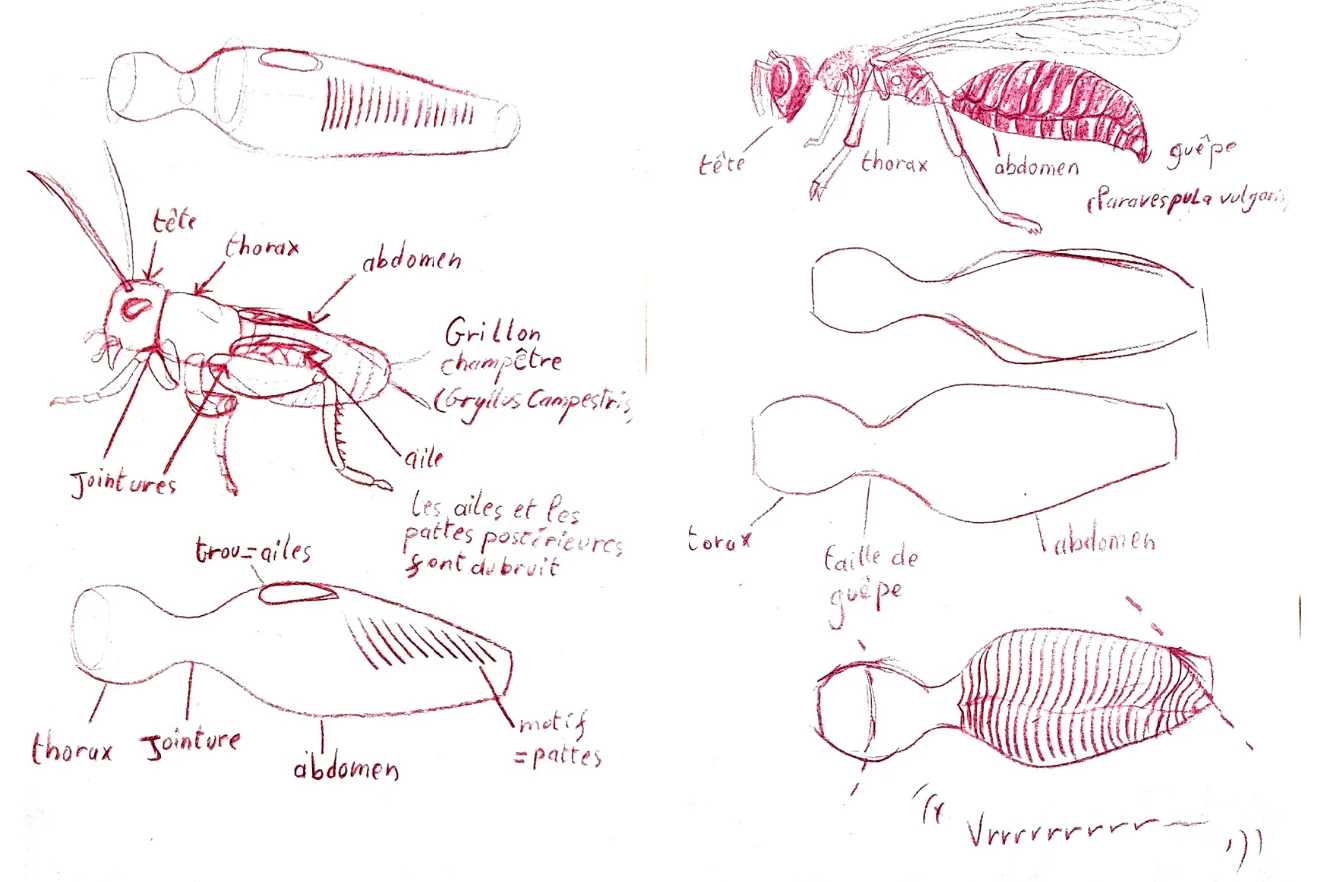 tête
thorax
abdomen
Grillon
champêtre
(Gryllus Campestris)
aile
Jointures
les ailes et les
pattes postérieures
font du bruit
trou=ailes
thorax
Jointure
abdomen
motif
=pattes
tête
thorax
abdomen
guêpe
(Paravespula vulgaris)
torax
taille de
guêpe
abdomen
Vrrrrrrrrr